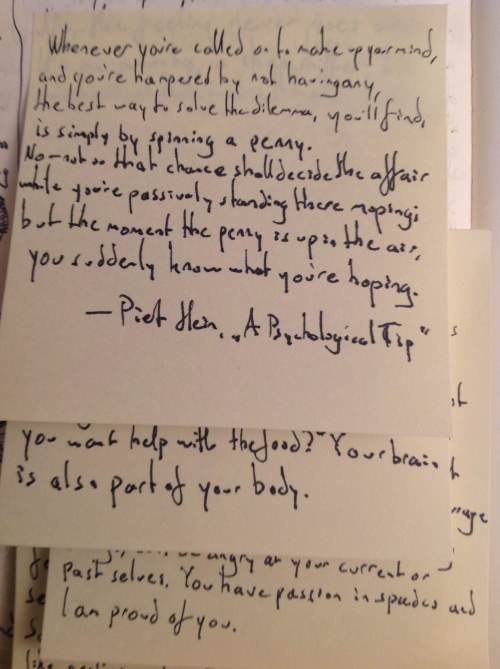 Whenever you're called on to make up your mind,
and you're hampered by not having any,
the best way to solve the dilemma, you'll find,
is simply by spinning a penny.
No – not so that chance shall decide the affair
while you're passively standing there moping;
but the moment the penny is up in the air,
you suddenly know what you're hoping.
— Piet Hein, „A Psychological Tip"
you want help with the food?" Your brain
is also part of your body.
angry at your current or
past selves. You have passion in spades and
I am proud of you.